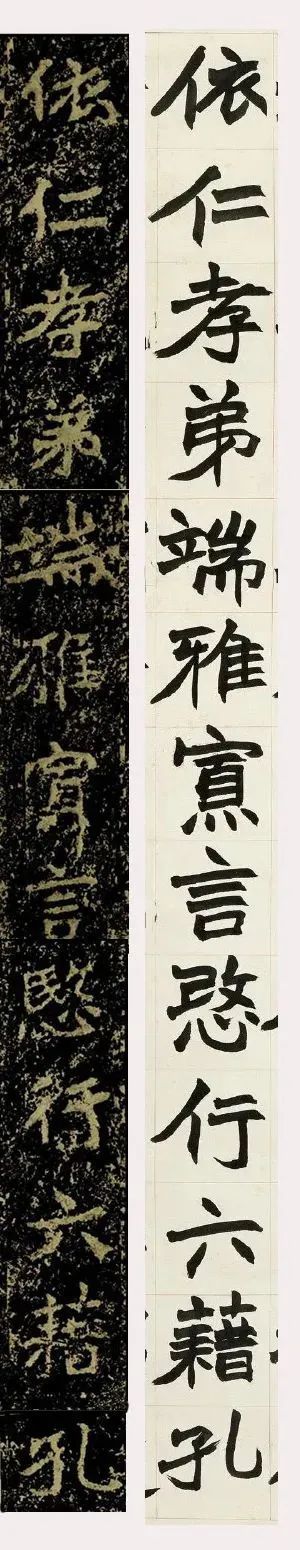 依仁孝弟端雅寡言愍行六藉孔
依仁孝弟端雅寡言愍行六藉孔